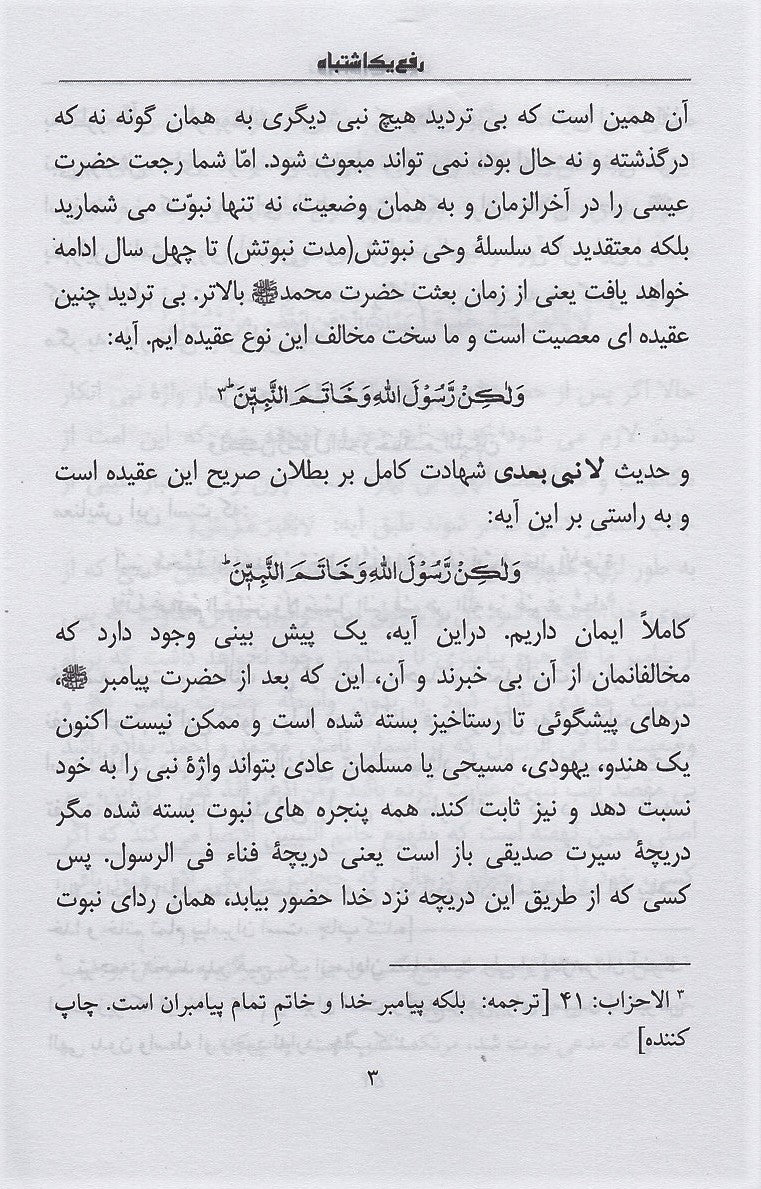 رفع یک اشتباه
آن همین است که بی تردید هیچ نبی دیگری به همان گونه نه که
درگذشته و نه حال بود، نمی تواند مبعوث شود. امّا شما رجعت حضرت
عیسی را در آخرالزمان و به همان وضعیت، نه تنها نبوّت می شمارید
بلکه معتقدید که سلسلۀ وحی نبوتش(مدت نبوتش) تا چهل سال ادامه
خواهد یافت یعنی از زمان بعثت حضرت محمدﷺ بالاتر. بی تردید چنین
عقیده ای معصیت است و ما سخت مخالف این نوع عقیده ایم. آیه:
وَلٰكِنْ رَّسُوْلَ اللهِ وَخَاتَمَ النَّبِيّٖنَ ؕ ۳
و حدیث لا نبی بعدی شهادت کامل بر بطلان صریح این عقیده است
و به راستی بر این آیه:
وَلٰكِنْ رَّسُوْلَ اللهِ وَخَاتَمَ النَّبِيّٖنَ ؕ
کاملاً ایمان داریم. دراین آیه، یک پیش بینی وجود دارد که
مخالفانمان از آن بی خبرند و آن، این که بعد از حضرت پیامبر ﷺ،
درهای پیشگوئی تا رستاخیز بسته شده است و ممکن نیست اکنون
یک هندو، یهودی، مسیحی یا مسلمان عادی بتواند واژۀ نبی را به خود
نسبت دهد و نیز ثابت کند. همه پنجره های نبوت بسته شده مگر
دریچۀ سیرت صدیقی باز است یعنی دریچۀ فناء فی الرسول. پس
کسی که از طریق این دریچه نزد خدا حضور بیابد، همان ردای نبوت
۳ الاحزاب: ۴۱ [ترجمه: بلکه پیامبر خدا و خاتمِ تمام پیامبران است. چاپ
کننده]
۳